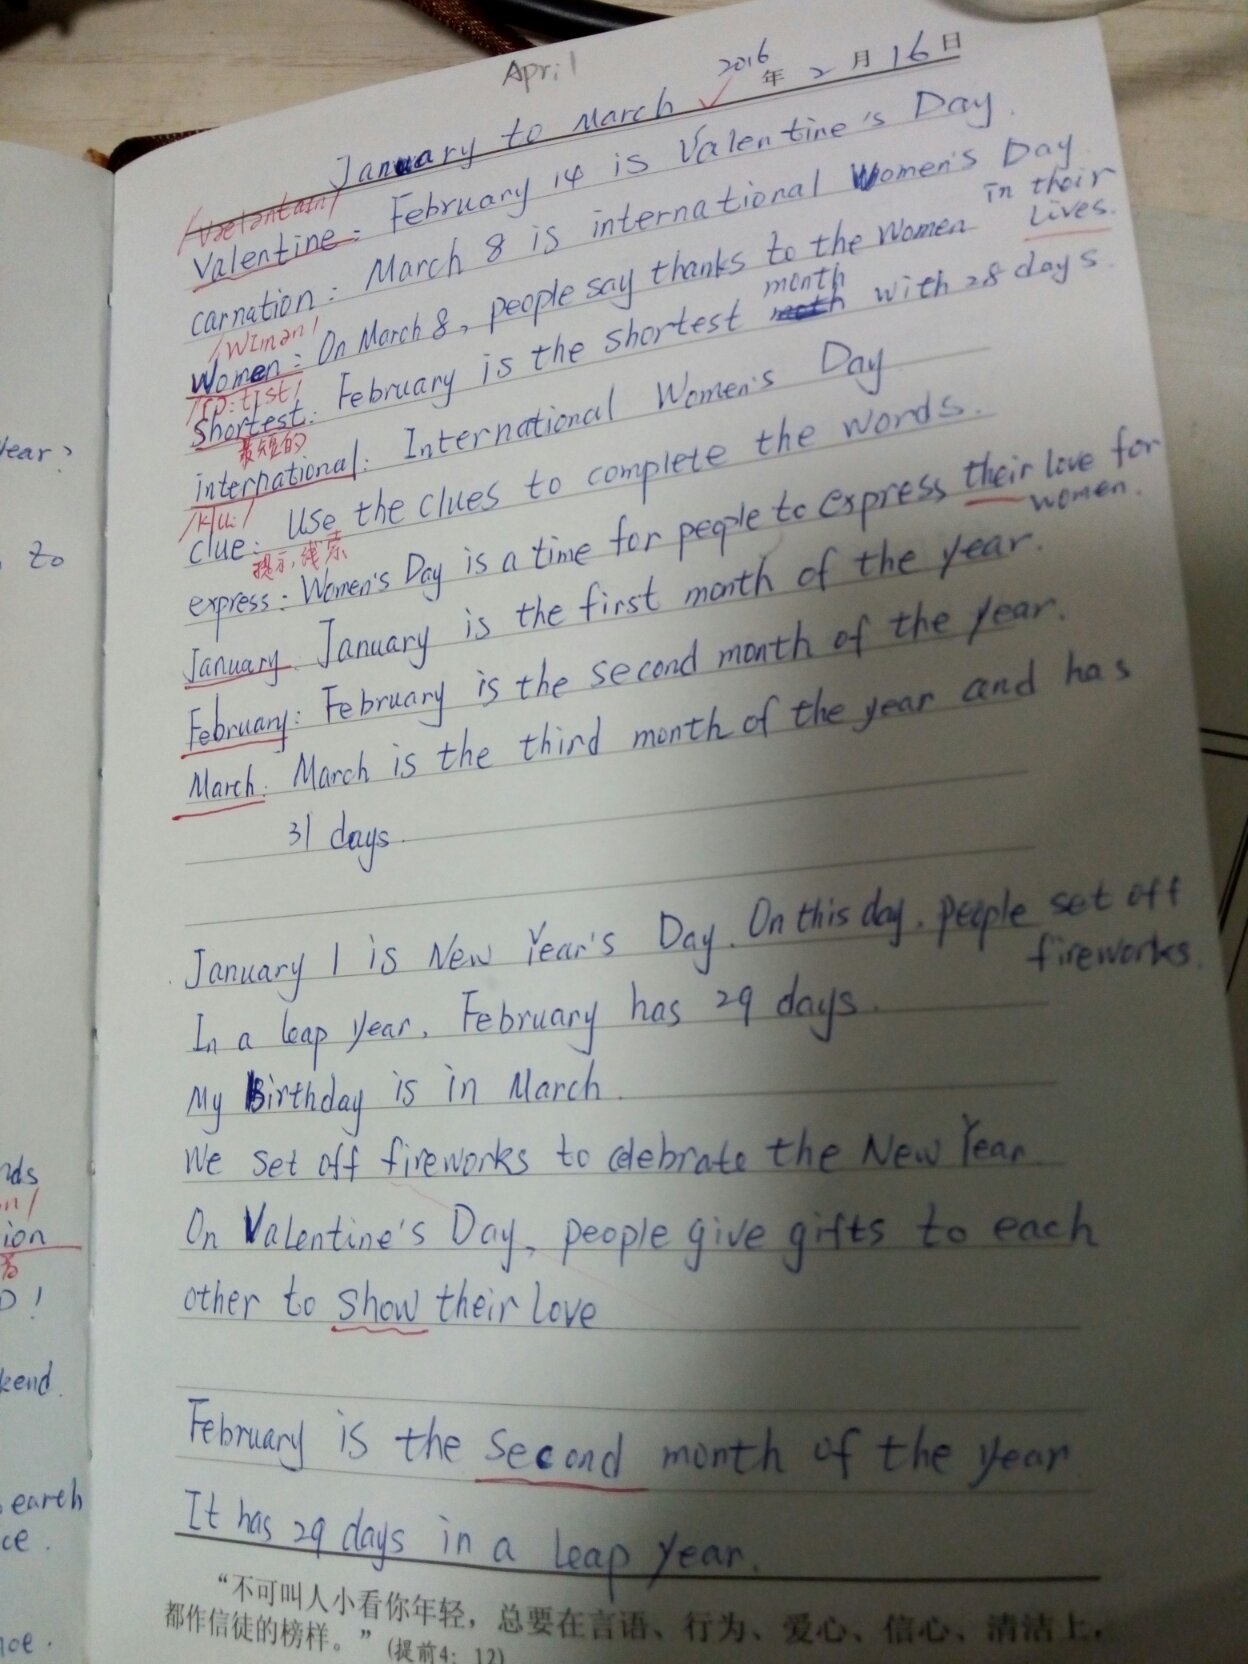 April
2016年2月16日
January to March
/vaeləntaɪn/
Valentine: February 14 is Valentine's Day.
carnation: March 8 is international Women's Day
/wɪmən/
Women: On March 8, people say thanks to the women in their lives.
Shortest: February is the shortest month with 28 days.
最短的
international: International Women's Day
/klu:/
clue: Use the clues to complete the words.
提示,线索
express: Women's Day is a time for people to express their love for women.
January January is the first month of the year.
February: February is the second month of the year.
March: March is the third month of the year and has
31 days.
January 1 is New Year's Day. On this day, people set off
fireworks.
In a leap year, February has 29 days.
My Birthday is in March.
We set off fireworks to celebrate the New Year
On Valentine's Day, people give gifts to each
other to show their love
February is the second month of the year
It has 29 days in a leap year.
“不可叫人小看你年轻，总要在言语、行为、爱心、信心、清洁上，
都作信徒的榜样。”(提前4：12)
Year?
to
nds
ion
kend.
earth
ce.